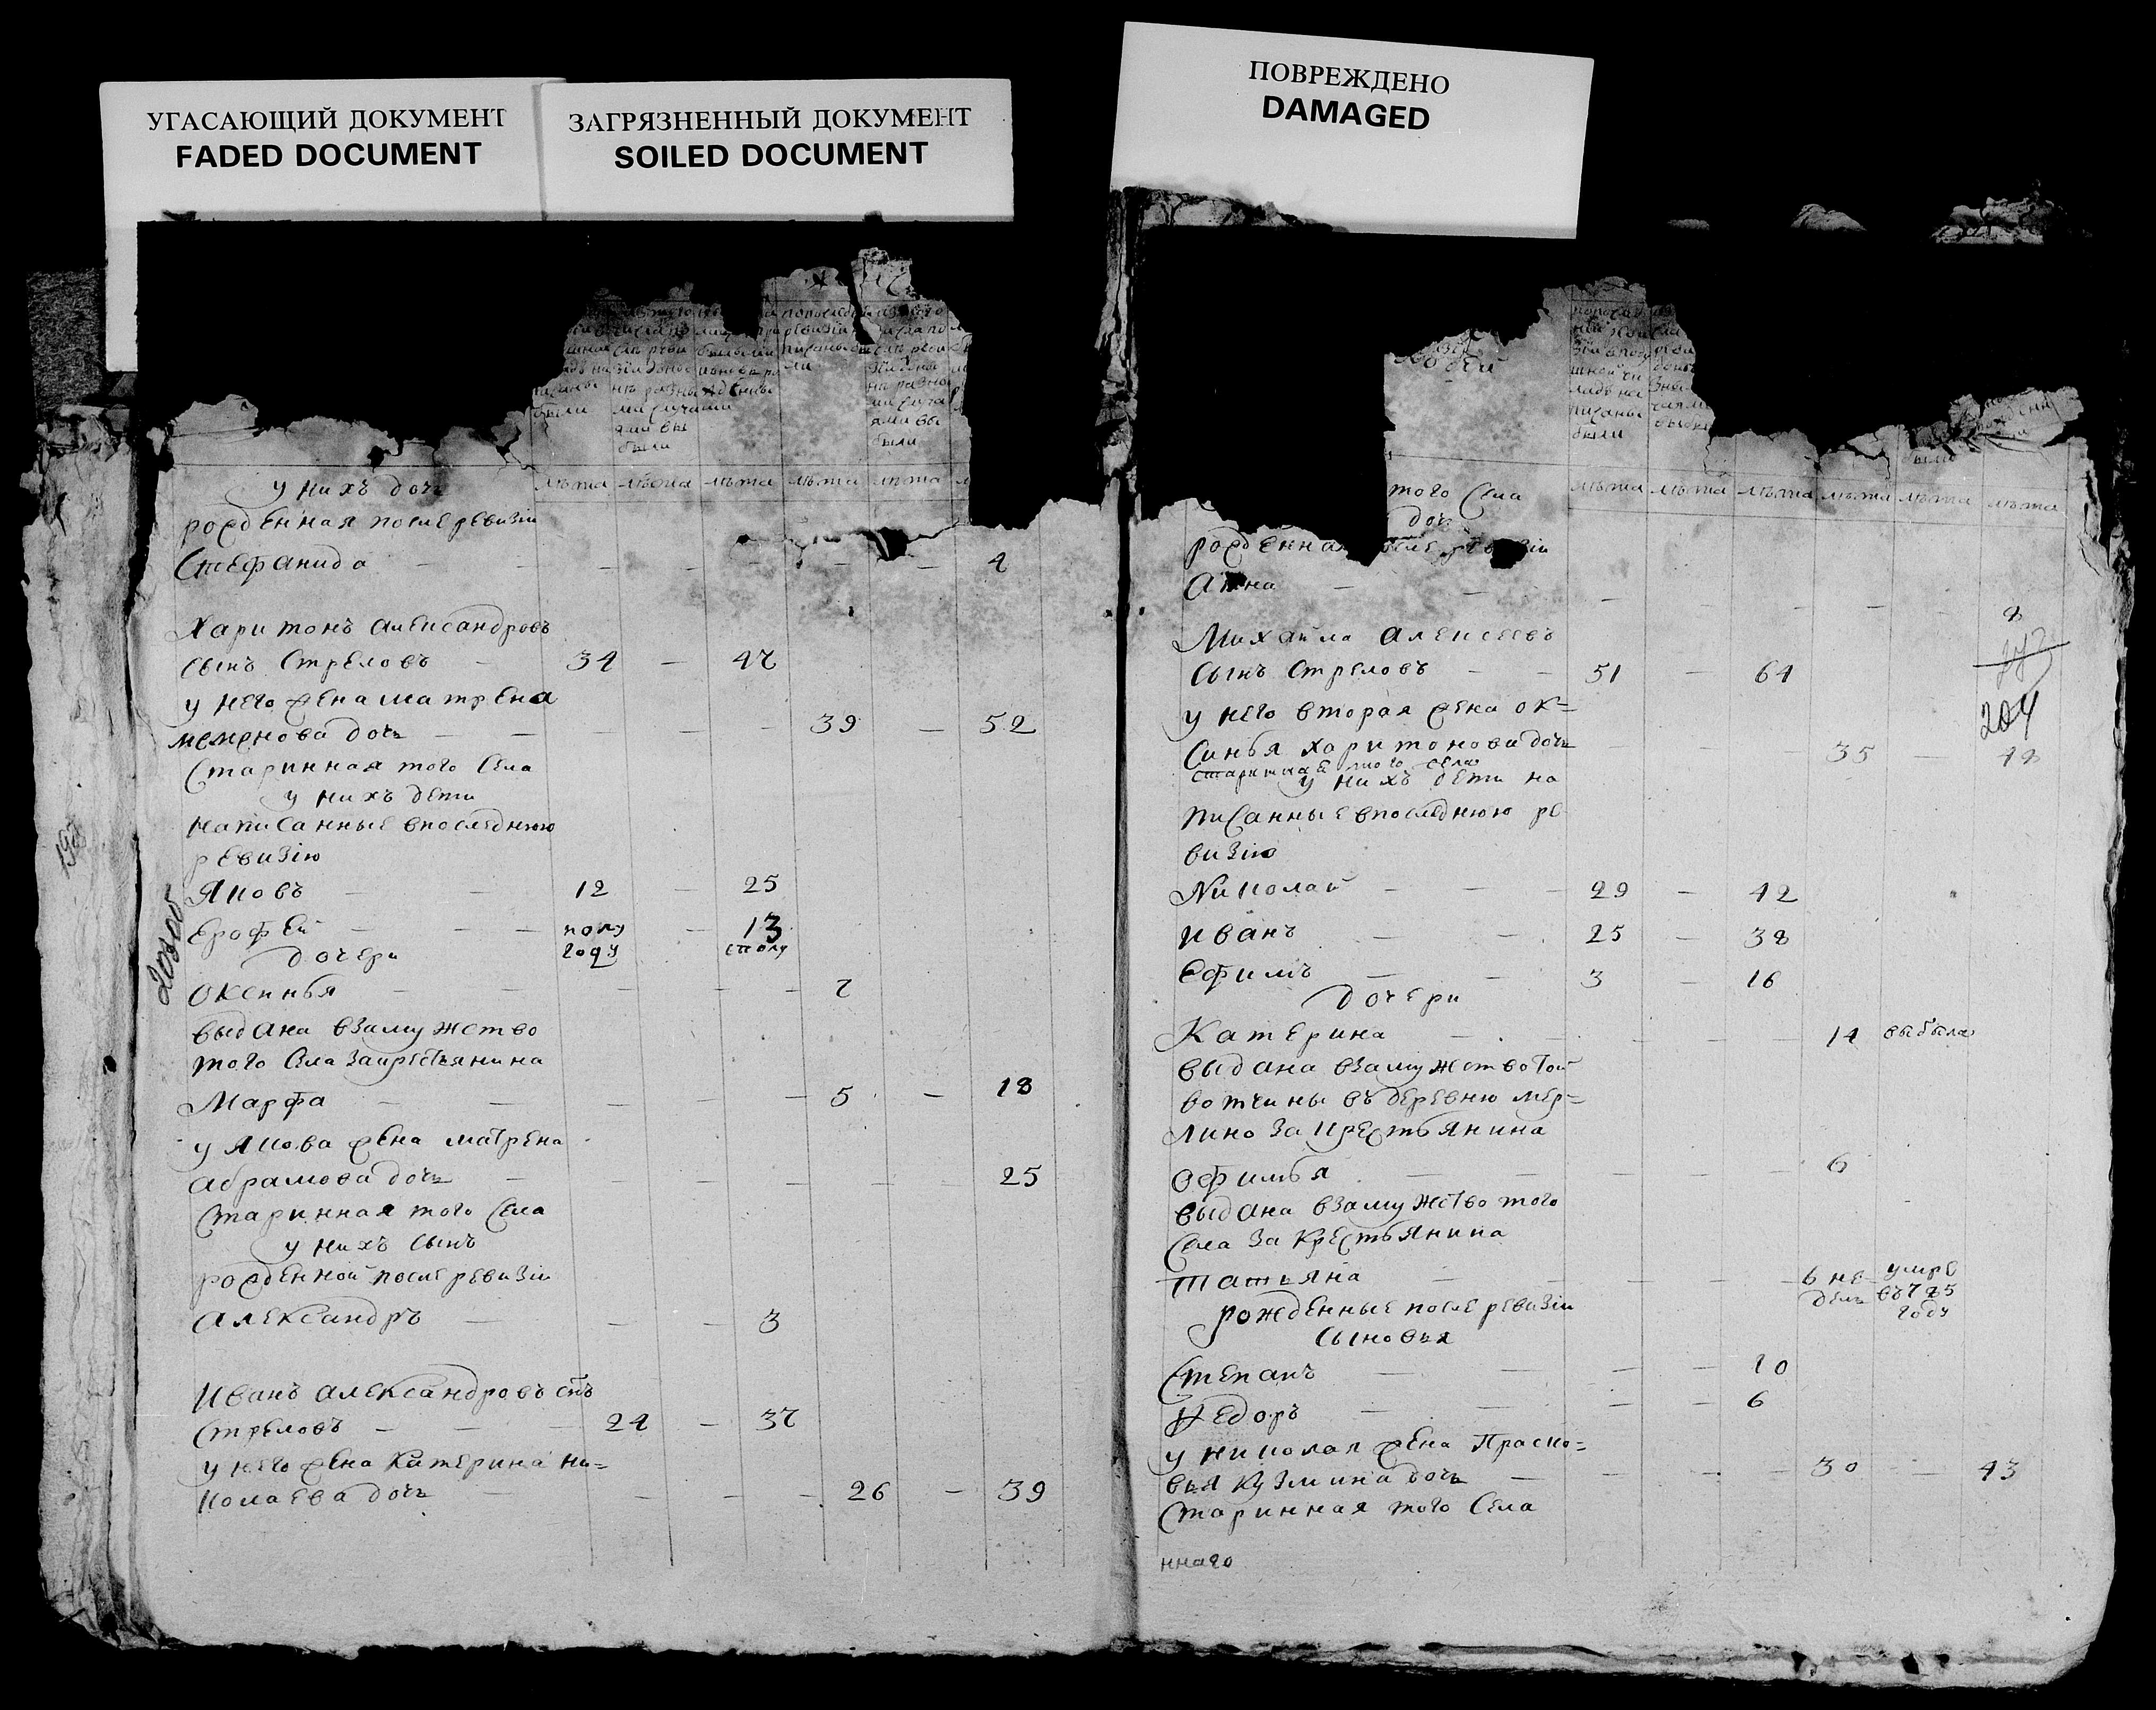 УГАСАЮЩИЙ ДОКУМЕНТ
FADED DOCUMENT
ЗАГРЯЗНЕННЫЙ ДОКУМЕНТ
SOILED DOCUMENT
ПОВРЕЖДЕНО
DAMAGED
были
были
лѣта лѣта лѣта лѣта лѣта
у нихъ дочь
рожденная после ревизіи
Стефанида — — — — — — — 4
Харитонъ Александровъ
сынъ Стреловъ — 34 — 47
у него жена матрена
дочь — — — — — 39 — 52
Старинная того Села
у нихъ дети
написанные впоследнюю
ревизію
Яковъ — — 12 — 25
Ерофей — — полу — 13
году сполу
дочери
Оксинья — — — — — 7
выдана взамужство
того Села закрестьянина
Марфа — — — — — 5 — 18
у Якова жена матрена
абрамова дочь — — — — — — 25
Старинная того Села
у нихъ сынъ
рожденной после ревизіи
Александръ — — — 3
Иванъ Александровъ снъ
Стреловъ — — — 24 — 37
у него жена Катерина ни=
колаева дочь — — — — 26 — 39
198
того Села
дочь
лѣта лѣта лѣта лѣта лѣта лѣта
рожденная после ревизіи
Анна — — — — — — — 8
Михайла Алексеевъ
сынъ Стреловъ — — 51 — 64
204
у него вторая жена ок=
синья харитонова дочь — — — 35 — 48
старинная того села
у нихъ дети на
писанные впоследнюю ре
визію
Николай — — — 29 — 42
Иванъ — — 25 — 38
Ефимъ — — 3 — 16
дочери
Катерина — — — — — 14 выбыла
выдана взамужство той
вотчины въ деревню мер=
лино за крестьянина
Офимья — — — — — 6
выдана взамужство того
Села за крестьянина
татьяна — — — — — 6 не умре
дель въ 785
году
рожденные после ревизіи
сыновья
Степанъ — — — 10
Федоръ — — — — 6
у николая жена Праско=
вья кузмина дочь — — — — 30 — 43
Старинная того Села
ннаго